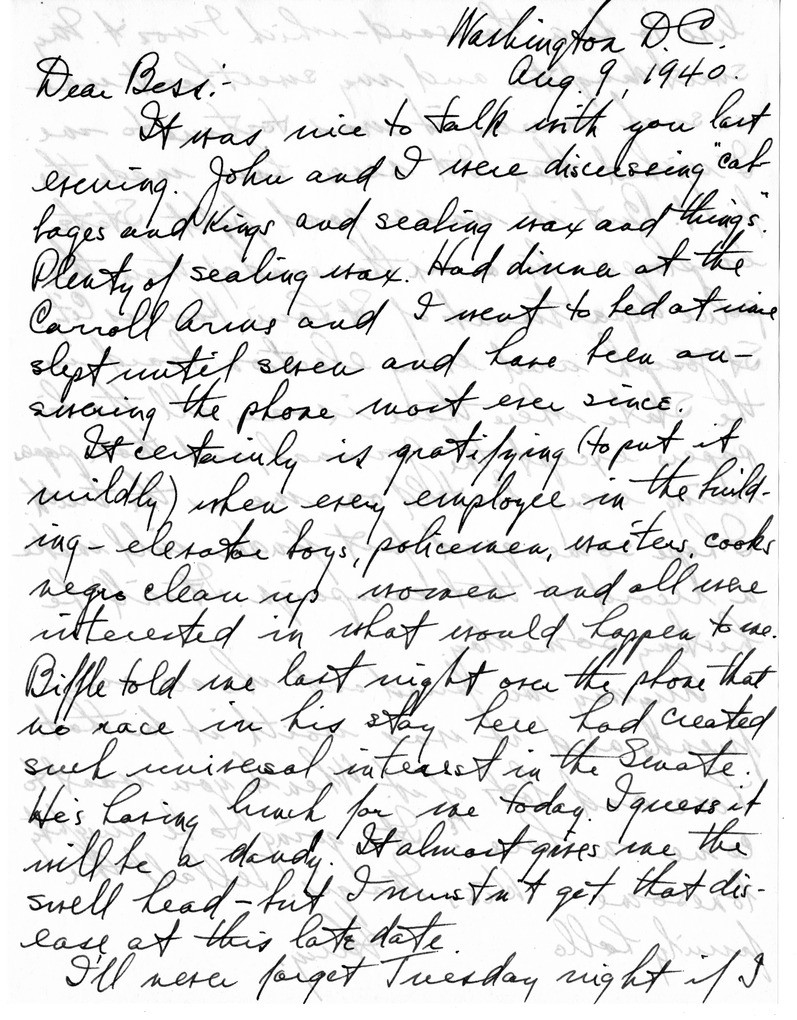 Washington D.C.
Aug. 9, 1940.
Dear Bess:-
It was nice to talk with you last
evening. John and I were discussing "cab
bages and Kings and sealing wax and things".
Plenty of sealing wax. Had dinner at the
Carroll Arms and I went to bed at nine
slept until seven and have been an-
swering the phone most ever since.
It certainly is gratifying (to put it
mildly) when every employee in the build-
ing - elevator boys, policemen, waiters, cooks
negro clean up women and all were
interested in what would happen to me.
Biffle told me last night over the phone that
no race in his stay here had created
such universal interest in the Senate.
He's having lunch for me today. I guess it
will be a dandy. It almost gives me the
swell head - but I mustn't get that dis-
ease at this late date.
I'll never forget Tuesday night if I